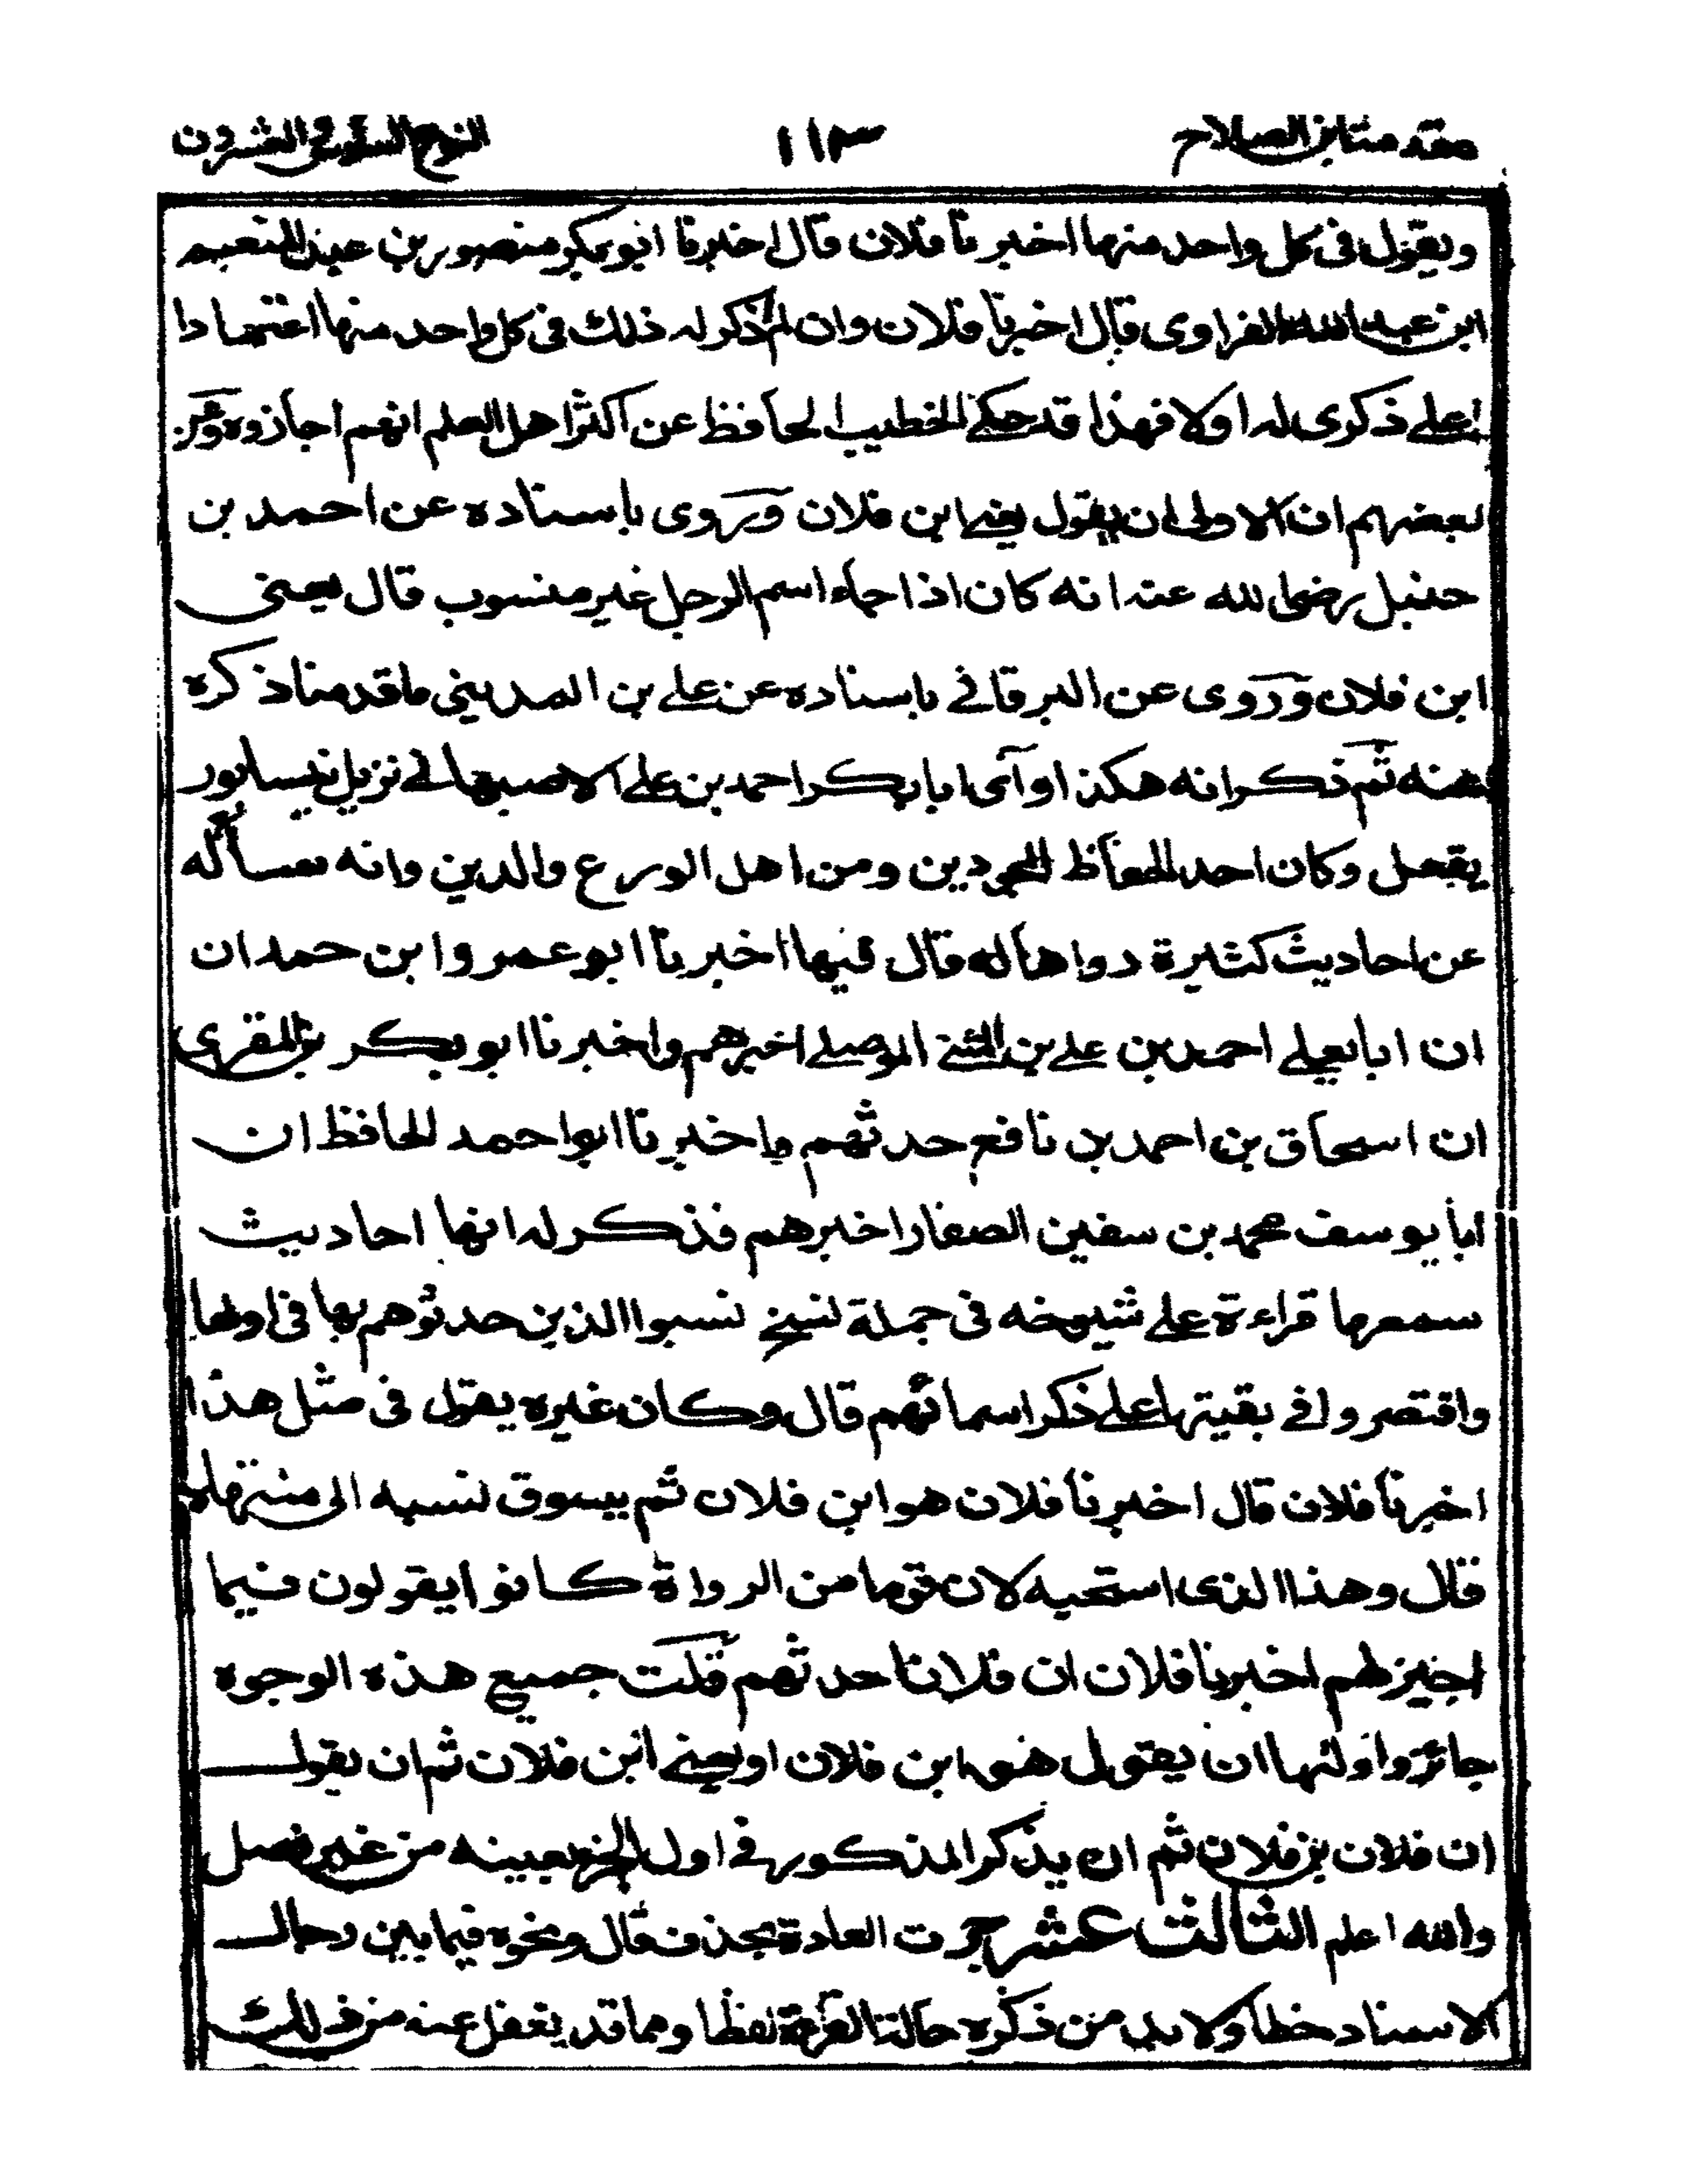 مقدمة ابن الصلاح ١١٣ النوع السادس والعشرون
ويقول فى كل واحد منها اخبرنا فلان قال اخبرنا ابو بكر منصور بن عبد المنعم
ابن عبد الله الفراوى قال اخبرنا فلان وان لم اذكر له ذلك فى كل واحد منها اعتمادا
على ذكرى له اولا فهذا قد حكى الخطيب الحافظ عن اكثر اهل العلم انهم اجازوه وعن
بعضهم ان الاولى ان يقول يعنى ابن فلان وروى باسناده عن احمد بن
حنبل رضى الله عنه انه كان اذا جاء اسم الرجل غير منسوب قال يعنى
ابن فلان وروى عن البرقانى باسناده عن على بن المدينى ما قدمنا ذكره
عنه ثم ذكر انه هكذا رآى ابا بكر احمد بن على الاصبهانى نزيل نيسابور
يفعل وكان احد الحفاظ المجودين ومن اهل الورع والدين وانه سأله
عن احاديث كثيرة رواها له قال فيها اخبرنا ابو عمرو ابن حمدان
ان ابا يعلى احمد بن على بن المثنى الموصلى اخبرهم واخبرنا ابو بكر بن المقرى
ان اسحاق بن احمد بن نافع حدثهم واخبرنا ابو احمد الحافظ ان
ابا يوسف محمد بن سفين الصفار اخبرهم فذكر له انها احاديث
سمعها قراءة على شيوخه فى جملة نسخ نسبوا الذين حدثوهم بها فى اولها
واقتصروا فى بقيتها على ذكر اسمائهم قال وكان غيره يقول فى مثل هذا
اخبرنا فلان قال اخبرنا فلان هو ابن فلان ثم يسوق نسبه الى منتهاه
قال وهذا الذى استحبه لان قوما من الرواة كانوا يقولون فيما
اجيز لهم اخبرنا فلان ان فلانا حدثهم قلت جميع هذه الوجوه
جائز واولٰها ان يقول هو ابن فلان او يعنى ابن فلان ثم ان يقول
ان فلان بن فلان ثم ان يذكر المذكور فى اول الجزء بعينه من غير فصل
والله اعلم الثالث عشر جرت العادة بحذف قال ونحوه فيما بين رجال
الاسناد خطا ولا بد من ذكره حالة القراءة لفظا ومما قد يغفل عنه من ذلك